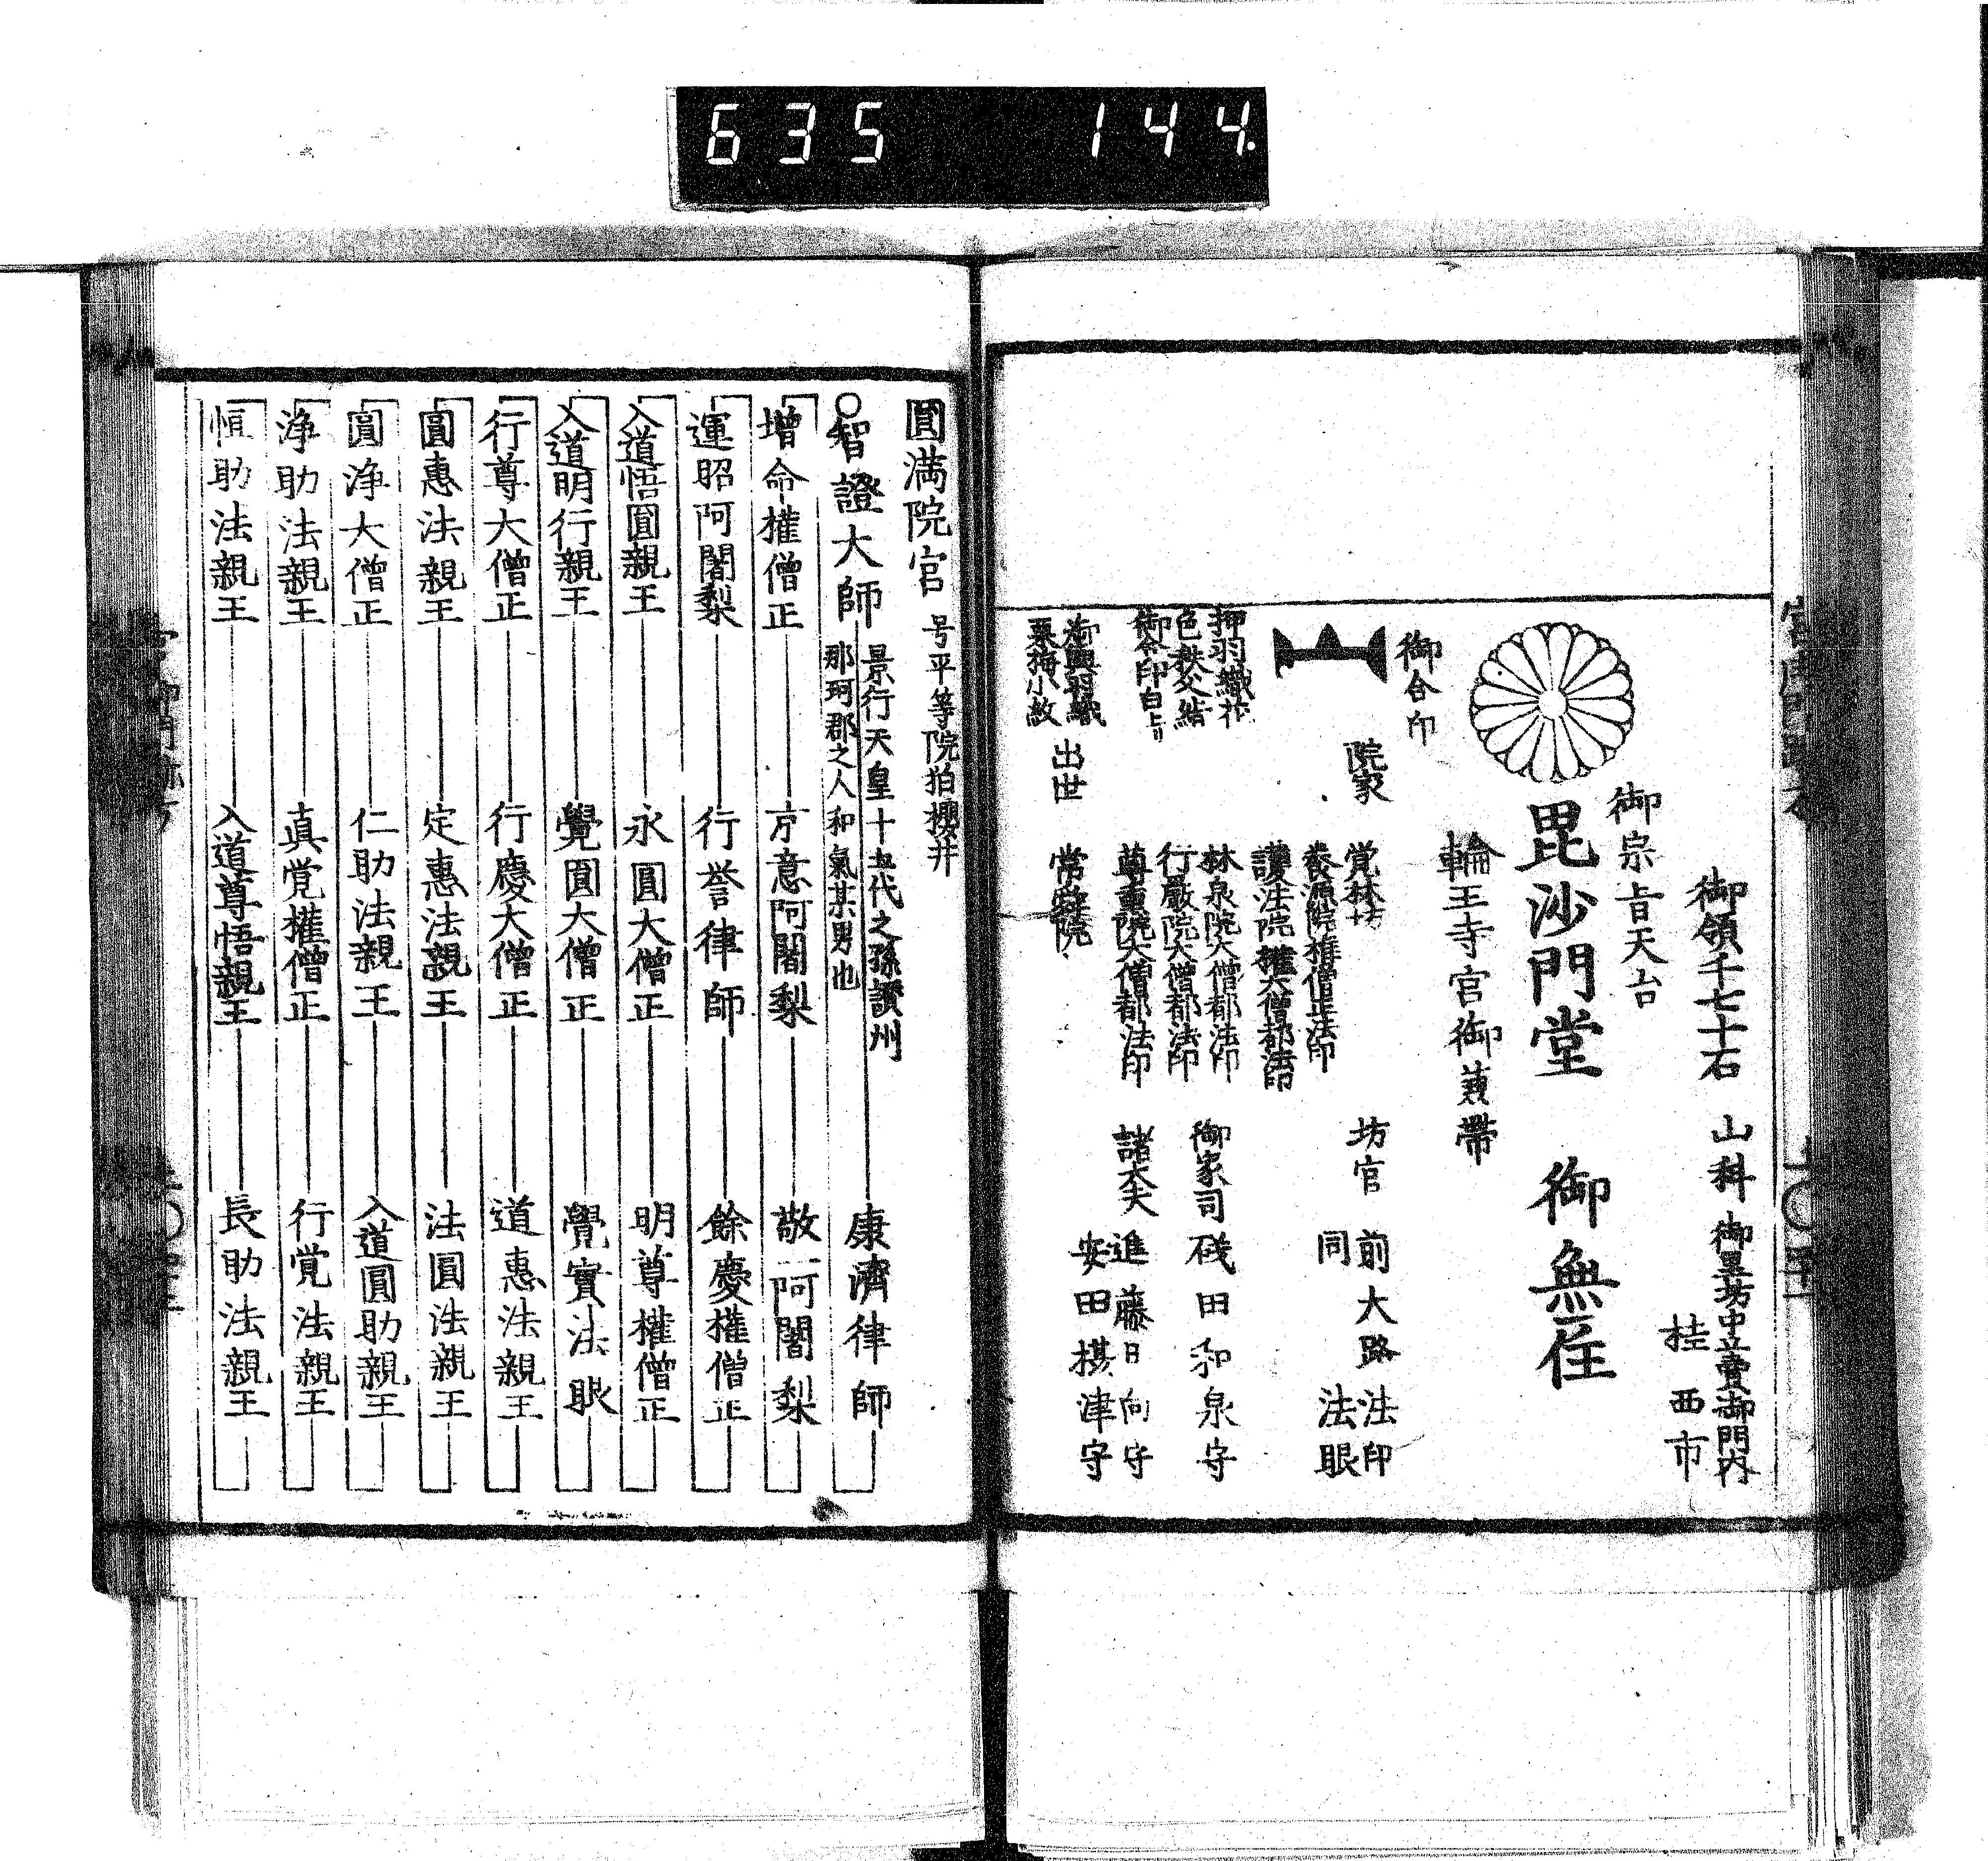 635 144.
御領千七十石 山科 御里坊中立賣御門内
桂西市
御宗旨天台
毘沙門堂 御無住
輪王寺宮御兼帶
御合印
院家
覚林坊
養源院権僧正法印
護法院権大僧都法印
林泉院大僧都法印
行嚴院大僧都法印
尊重院大僧都法印
押羽織花
色秩父結
御合印白上リ
出世
坊官 前大路法印
同 法眼
御家司 磯田和泉守
諸大夫 進藤日向守
安田摂津守
圓満院宮 号平等院 狛櫻井
○智證大師 景行天皇十五代之孫讃州
那珂郡之人和氣某男也
康濟律師
増命権僧正
意阿闍梨
敬一阿闍梨
運昭阿闍梨
行誉律師
餘慶権僧正
入道悟圓親王
永圓大僧正
明尊権僧正
入道明行親王
覺圓大僧正
覺實法眼
行尊大僧正
行慶大僧正
道惠法親王
圓惠法親王
定惠法親王
法圓法親王
圓浄大僧正
仁助法親王
入道圓助親王
浄助法親王
真覚権僧正
行覚法親王
恒助法親王
入道尊悟親王
長助法親王